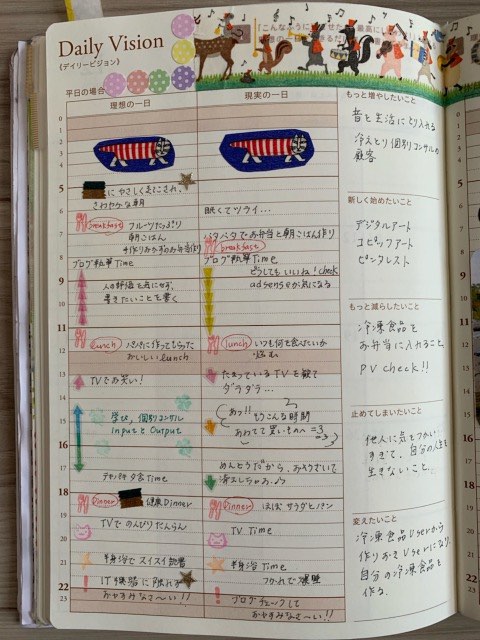 Daily Vision
《デイリービジョン》
平日の場合
理想の一日
現実の一日
もっと増やしたいこと
音を生活にとり入れる
冷えとり個別コンサルの
顧客
新しく始めたいこと
デジタルアート
コピックアート
ピンタレスト
もっと減らしたいこと
冷凍食品を
お弁当に入れること
PV check!!
止めてしまいたいこと
他人に気をつかい
すぎて、自分の人生を
生きないこと…
変えたいこと
冷凍食品Userから
作りおきUserになり、
自分の冷凍食品を
作る.
0
1
2
3
4
5
にやさしく起こされ、
さわやかな朝
6
眠くてツライ…
7
breakfast フルーツたっぷり
朝ごはん
バタバタでお弁当と朝ごはん作り
breakfast
8
ブログ執筆Time
ブログ執筆Time
9
人の評価を気にせず、
書きたいことを書く
どうしてもいいね!check
adsenseが気になる
10
11
12
lunch パパに作ってもらった
おいしいlunch
lunch いつも何を食べたいか
悩む
13
TVでお笑い!
たまっているTVを観て
ダラダラ…
14
15
学び, 個別コンサル
InputとOutput
あっ!! もうこんな時間
あわてて買いものへ =3
16
17
テキパキ夕食Time
めんどうだから、
18
19
Dinner 健康Dinner
Dinner ほぼサラダとパン
20
TVでのんびりだんらん
TV Time
21
半身浴でスイスイ読書
半身浴Time
つかれて爆睡
22
IT機器に触れず
おやすみなさ〜い!!
23
ブログチェックして
おやすみなさ〜い!!